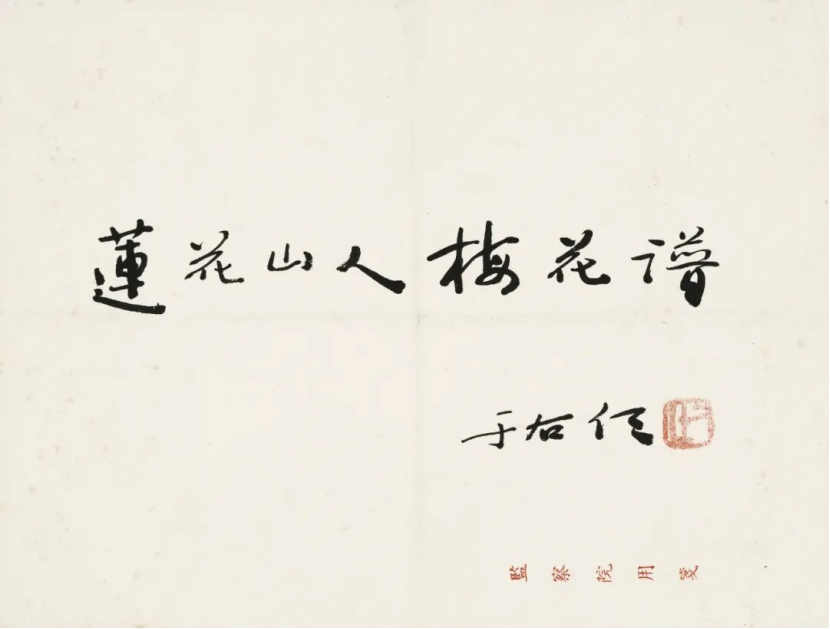 蓮花山人梅花譜
于右任
監察院用箋